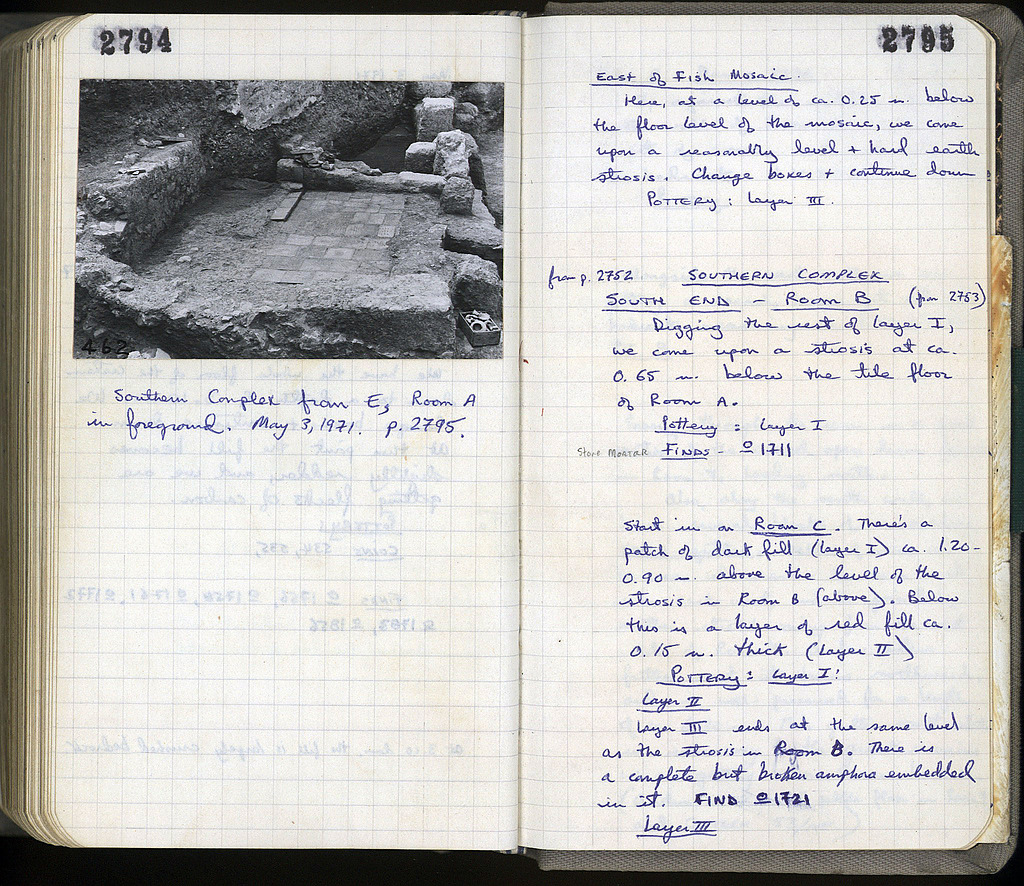 2794
462
Southern Complex from E, Room A
in foreground. May 3, 1971. p. 2795.
2795
East of Fish Mosaic.
Here, at a level of ca. 0.25 m. below
the floor level of the mosaic, we come
upon a reasonably level + hard earth
strosis. Change boxes + continue down
POTTERY: Layer III.
from p. 2752 SOUTHERN COMPLEX
SOUTH END - ROOM B (from 2753)
Digging the rest of layer I,
we come upon a strosis at ca.
0.65 m. below the tile floor
of Room A.
Pottery: Layer I
STONE MORTAR FINDS - 1711
Start in on Room C. There's a
patch of dark fill (layer I) ca. 1.20-
0.90 m. above the level of the
strosis in Room B (above). Below
this is a layer of red fill ca.
0.15 m. thick (Layer II)
POTTERY: Layer I:
Layer II
Layer III ends at the same level
as the strosis in Room B. There is
a complete but broken amphora embedded
in it. FIND 1721
Layer III